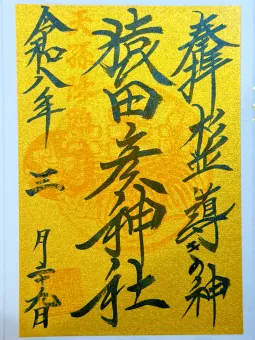 奉拝 松並 導きの神
猿田彦神社
令和八年 三月二十九日